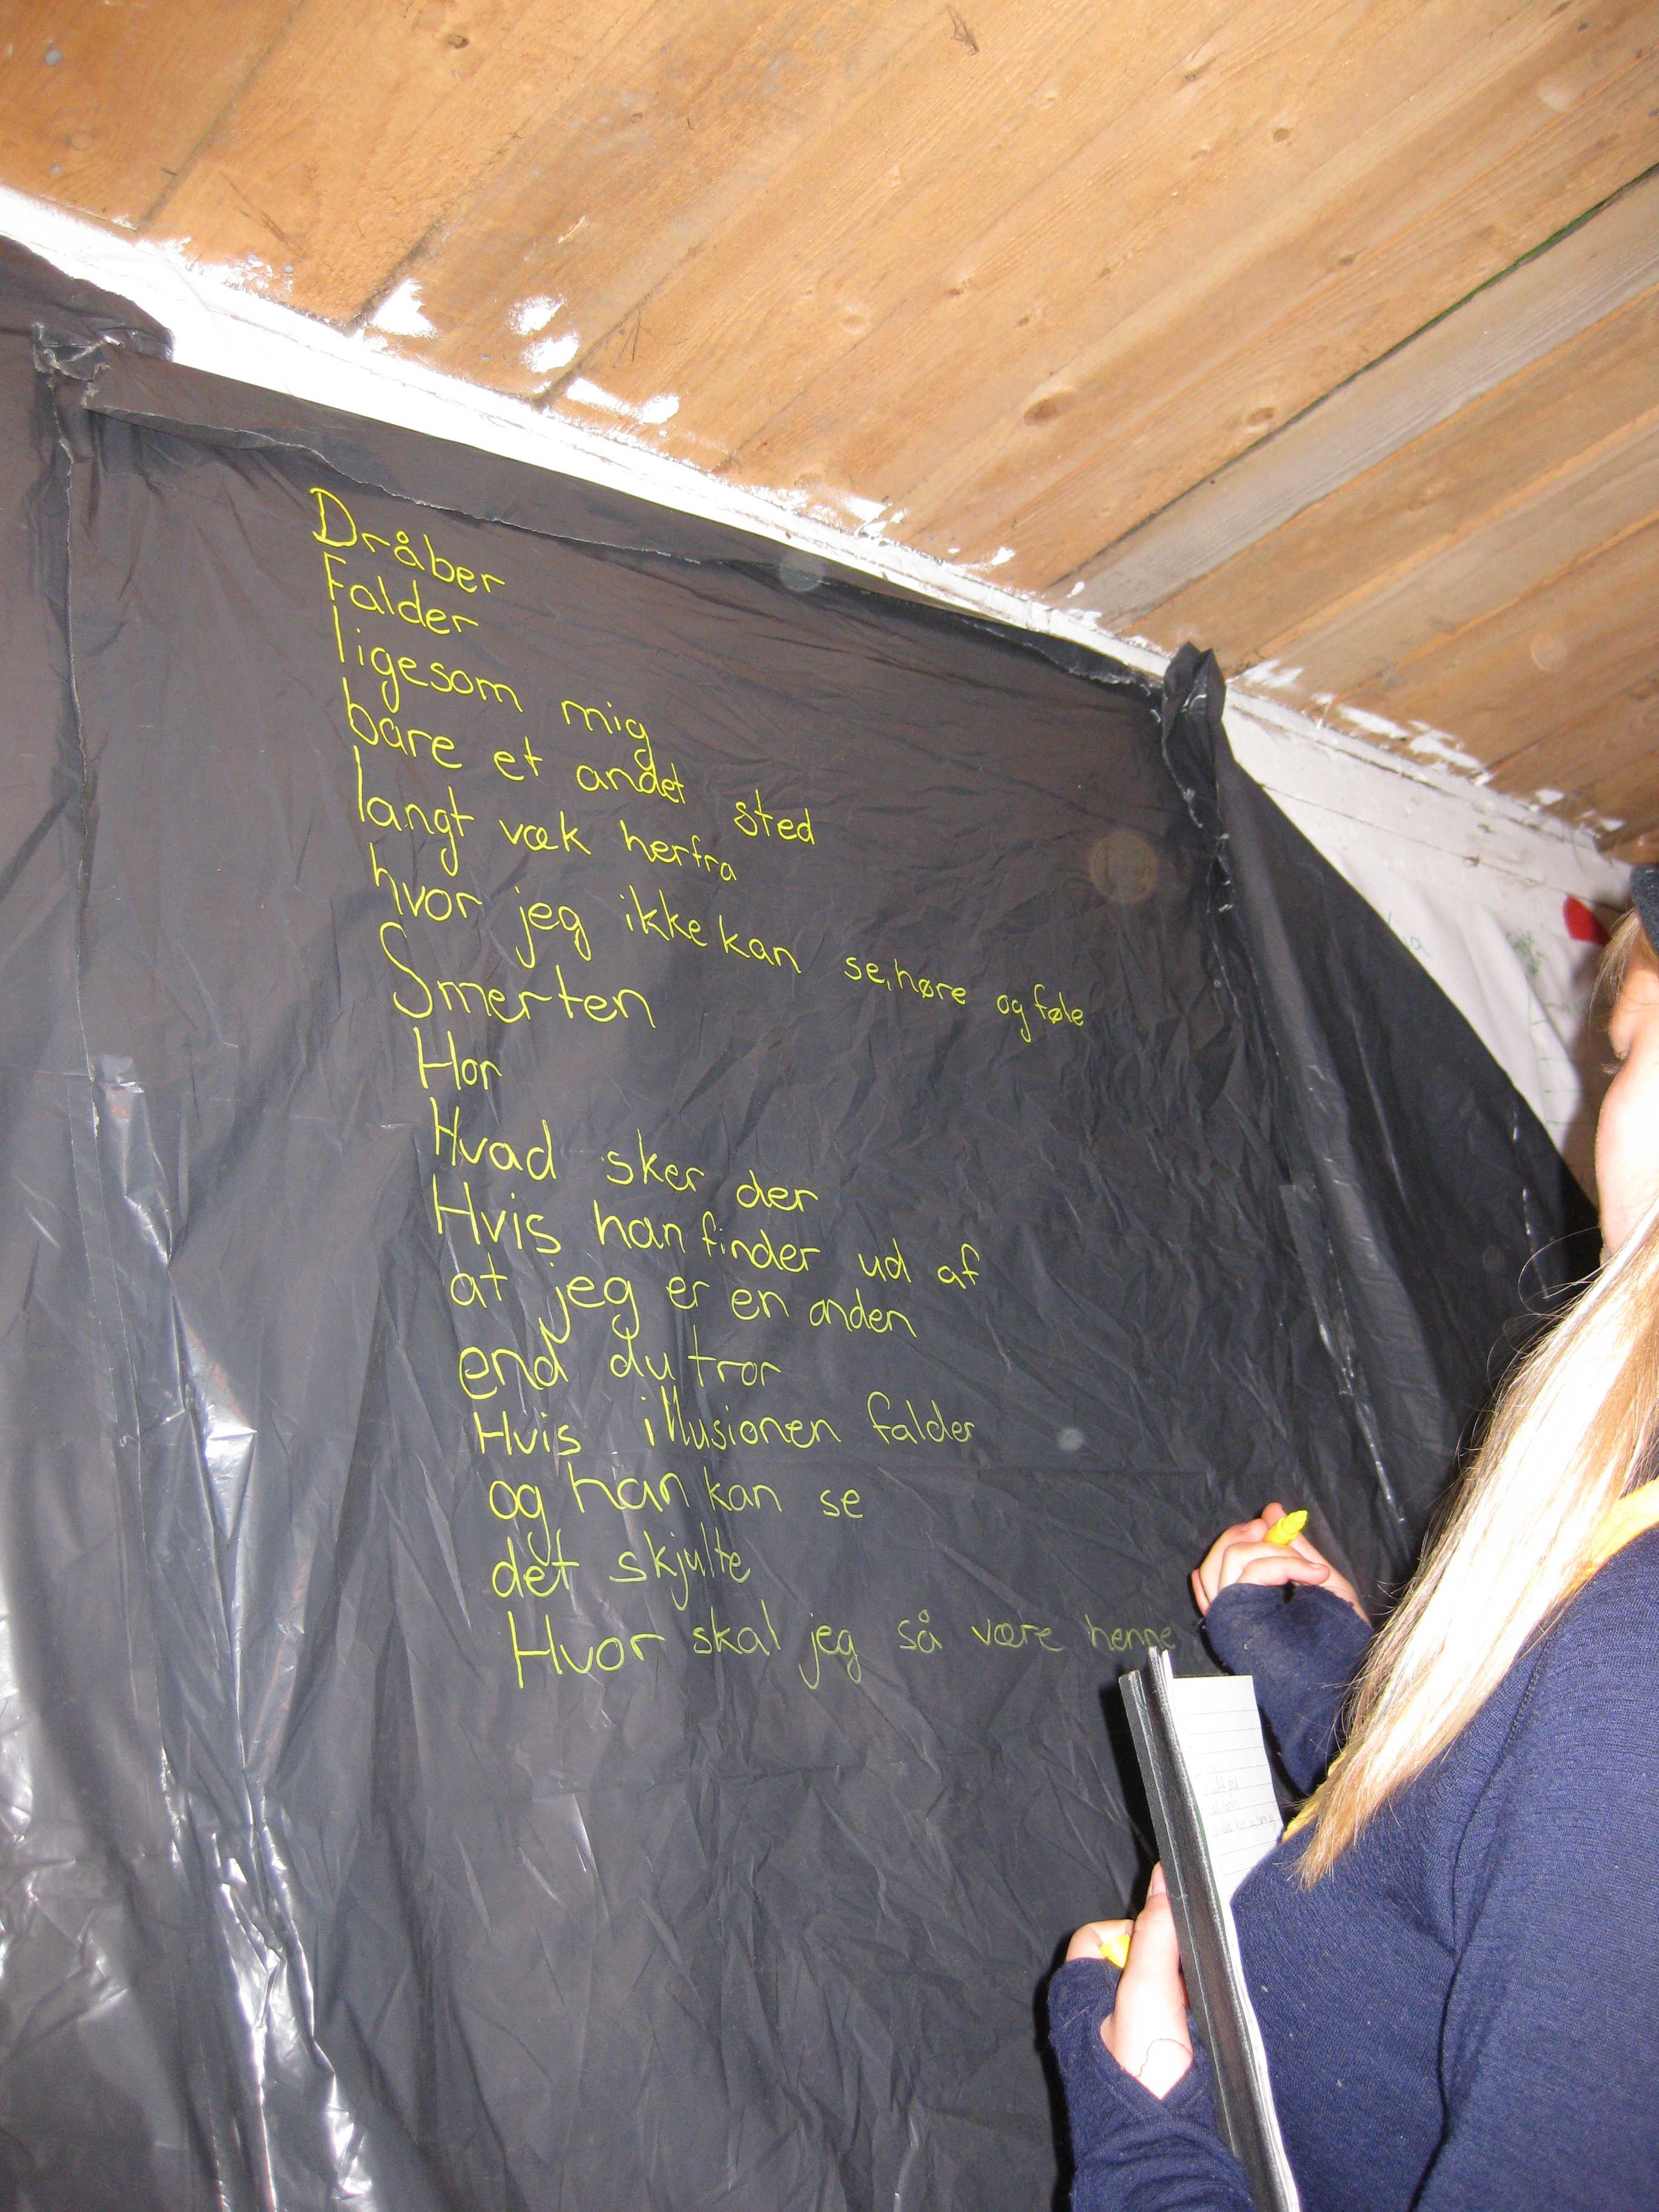 Dråber
Falder
ligesom mig
bare et andet sted
langt væk herfra
hvor jeg ikke kan se, høre og føle
Smerten
Hor
Hvad sker der
Hvis han finder ud af
at jeg er en anden
end du tror
Hvis illusionen falder
og han kan se
det skjulte
Hvor skal jeg så være henne